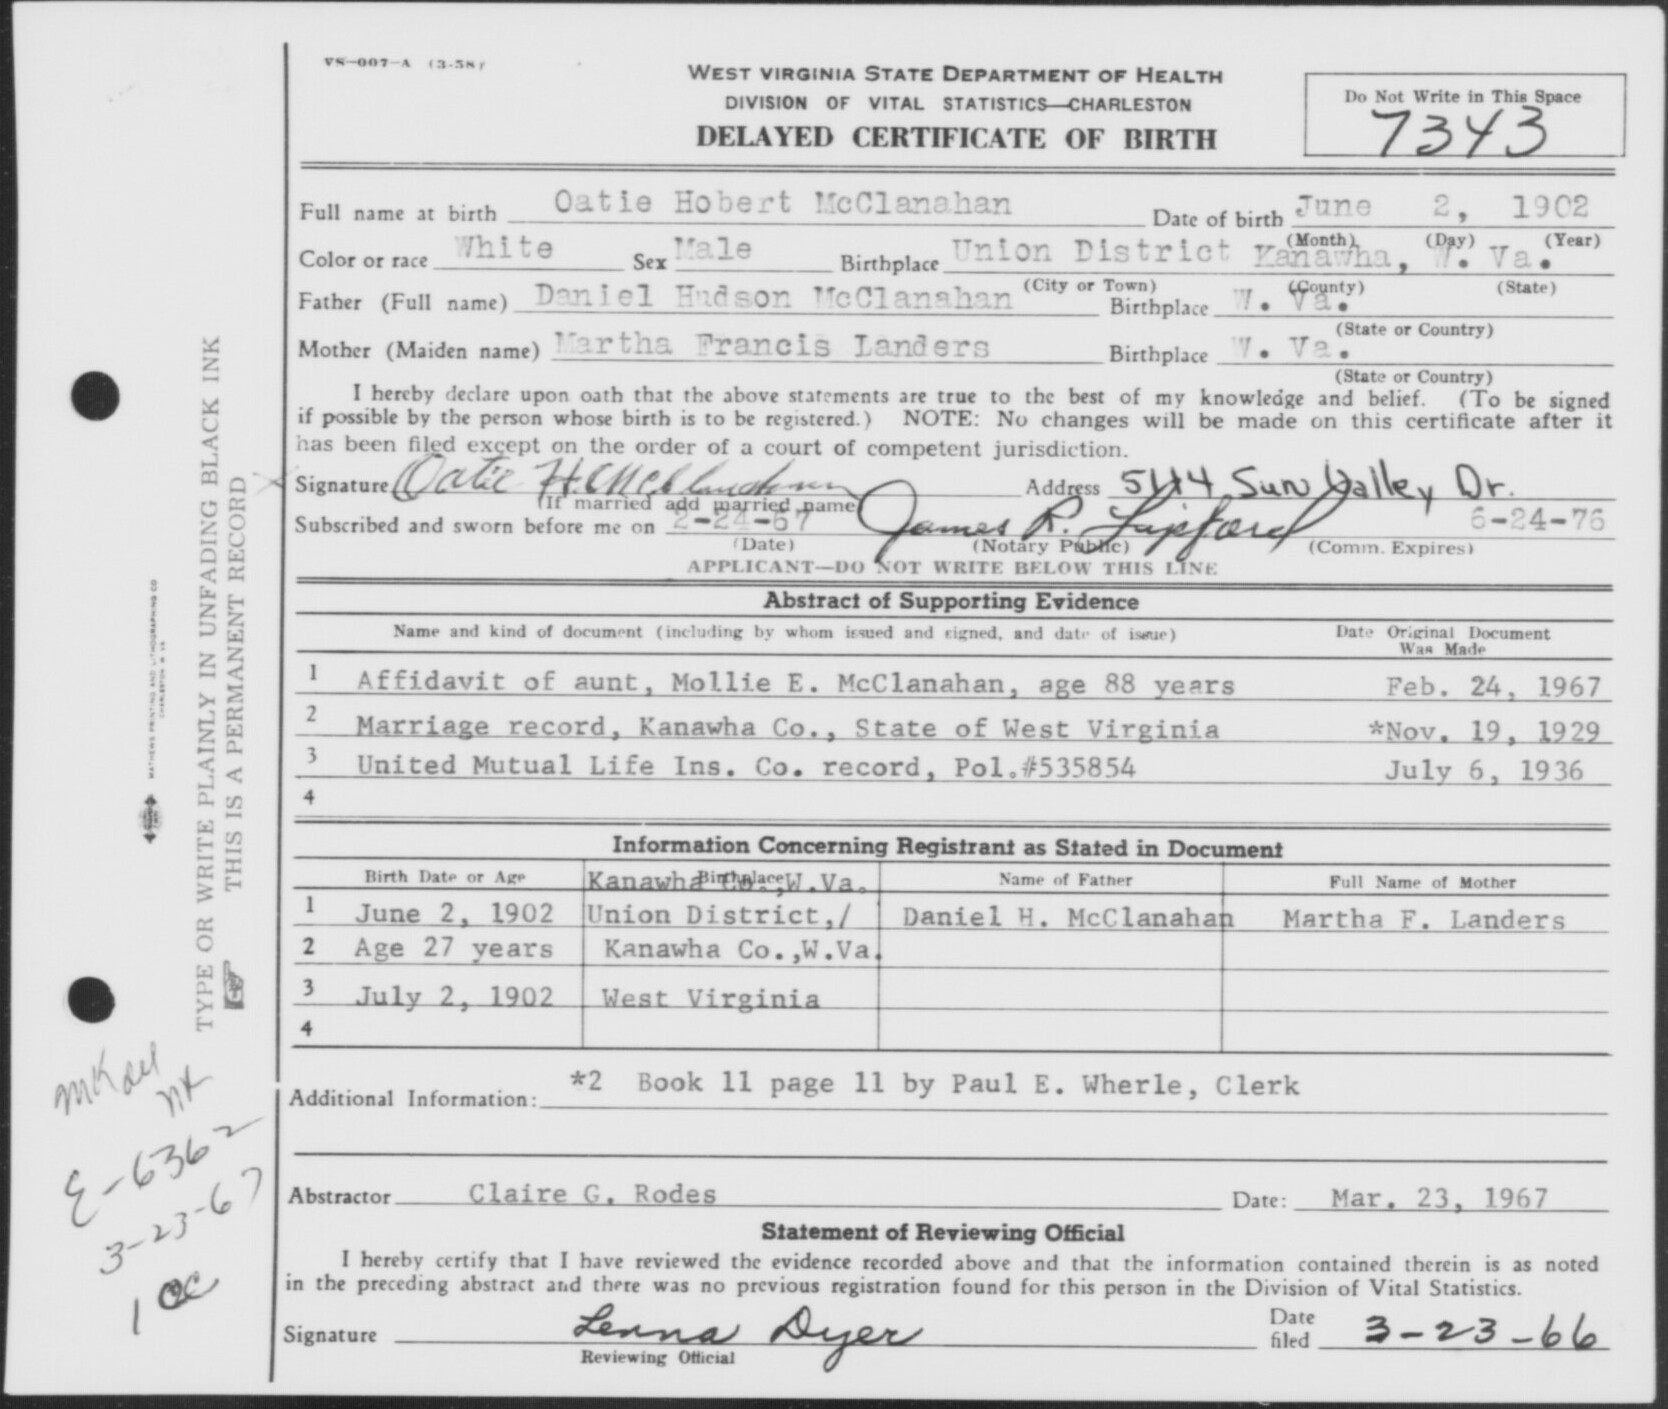 VS-007-A (3-58)
WEST VIRGINIA STATE DEPARTMENT OF HEALTH
DIVISION OF VITAL STATISTICS—CHARLESTON
DELAYED CERTIFICATE OF BIRTH
Do Not Write in This Space
7343
Full name at birth Oatie Hobert McClanahan Date of birth June 2, 1902
(Month) (Day) (Year)
Color or race White Sex Male Birthplace Union District Kanawha, W. Va.
(City or Town) (County) (State)
Father (Full name) Daniel Hudson McClanahan Birthplace W. Va.
(State or Country)
Mother (Maiden name) Martha Francis Landers Birthplace W. Va.
(State or Country)
I hereby declare upon oath that the above statements are true to the best of my knowledge and belief. (To be signed
if possible by the person whose birth is to be registered.) NOTE: No changes will be made on this certificate after it
has been filed except on the order of a court of competent jurisdiction.
Signature Oatie H. McClanahan Address 5114 Sun Valley Dr.
(If married add married name)
Subscribed and sworn before me on 2-24-67 James R. 6-24-76
(Date) (Notary Public) (Comm. Expires)
APPLICANT—DO NOT WRITE BELOW THIS LINE
Abstract of Supporting Evidence
Name and kind of document (including by whom issued and signed, and date of issue) Date Original Document
Was Made
1 Affidavit of aunt, Mollie E. McClanahan, age 88 years Feb. 24, 1967
2 Marriage record, Kanawha Co., State of West Virginia *Nov. 19, 1929
3 United Mutual Life Ins. Co. record, Pol.#535854 July 6, 1936
4
Information Concerning Registrant as Stated in Document
Birth Date or Age Birthplace Name of Father Full Name of Mother
Kanawha Co.,W.Va.
1 June 2, 1902 Union District,/ Daniel H. McClanahan Martha F. Landers
2 Age 27 years Kanawha Co.,W.Va.
3 July 2, 1902 West Virginia
4
Additional Information: *2 Book 11 page 11 by Paul E. Wherle, Clerk
Abstractor Claire G. Rodes Date: Mar. 23, 1967
Statement of Reviewing Official
I hereby certify that I have reviewed the evidence recorded above and that the information contained therein is as noted
in the preceding abstract and there was no previous registration found for this person in the Division of Vital Statistics.
Signature Lenna Dyer Date
filed 3-23-66
Reviewing Official
TYPE OR WRITE PLAINLY IN UNFADING BLACK INK
THIS IS A PERMANENT RECORD
MATHEWS PRINTING AND LITHOGRAPHING CO
CHARLESTON W VA
E-6362
3-23-67
1 cc